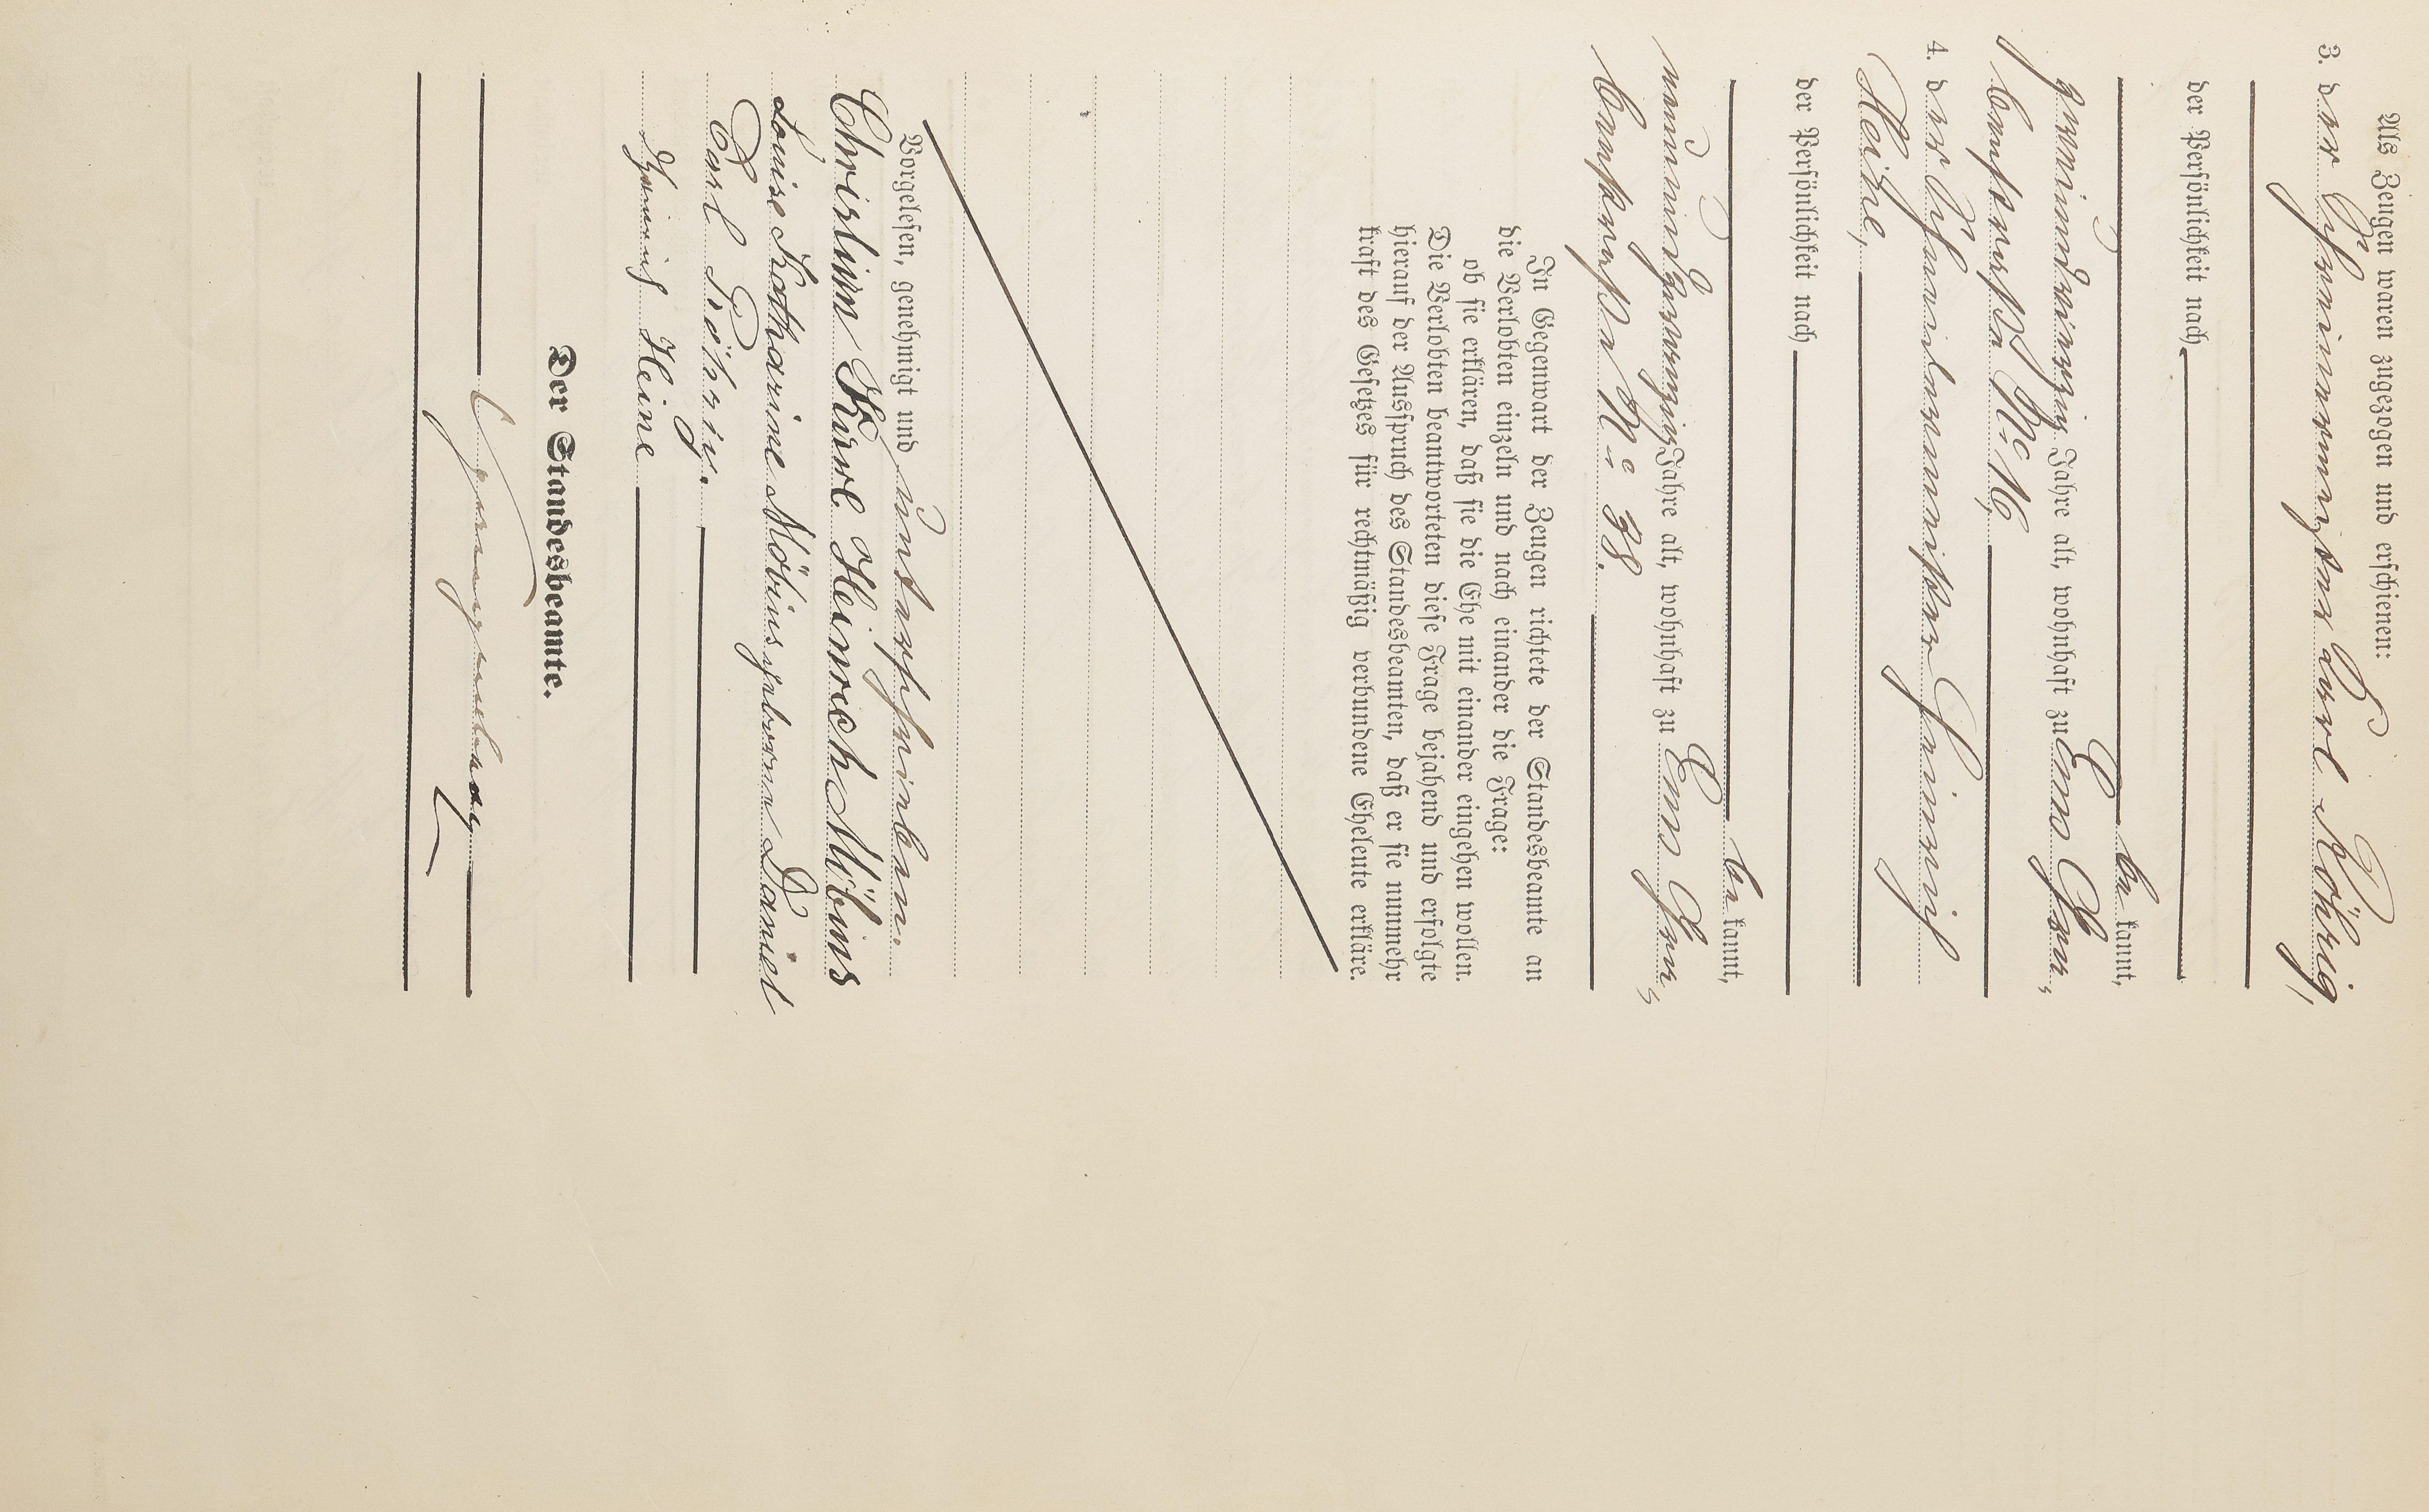 Als Zeugen waren zugezogen und erschienen:
3. der Schreinermeister Carl Röhrig,
der Persönlichkeit nach
be kannt,
zweiunddreißig Jahre alt, wohnhaft zu Ems
No 16,
4. der Heinrich
Heine,
der Persönlichkeit nach
be kannt,
neunundzwanzig Jahre alt, wohnhaft zu Ems
No 38.
In Gegenwart der Zeugen richtete der Standesbeamte an
die Verlobten einzeln und nach einander die Frage:
ob sie erklären, daß sie die Ehe mit einander eingehen wollen.
Die Verlobten beantworteten diese Frage bejahend und erfolgte
hierauf der Ausspruch des Standesbeamten, daß er sie nunmehr
kraft des Gesetzes für rechtmäßig verbundene Eheleute erkläre.
Vorgelesen, genehmigt und unterschrieben.
Christian Karl Heinrich Möbius
Louise Katharine Möbius geborene Daniel
Carl Röhrig.
Heinrich Heine
Der Standesbeamte.